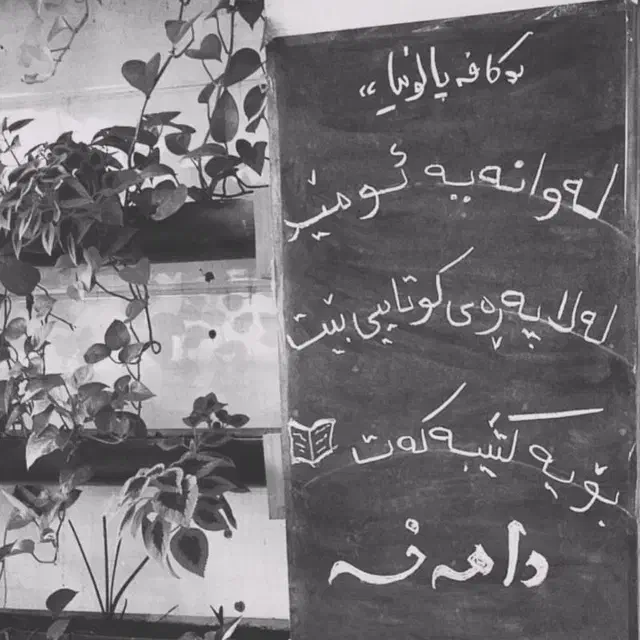 بۆکافە پالۆنیا "
لەوانەیە ئومێد
لەلاپەڕەی کۆتایی بێت
بۆیە کتێبەکەت
دامەخە